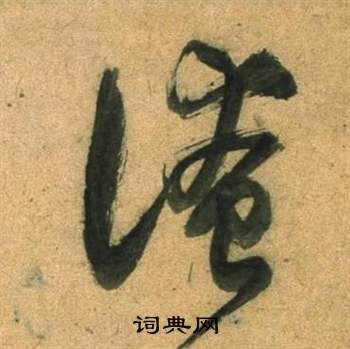 淹
词典网